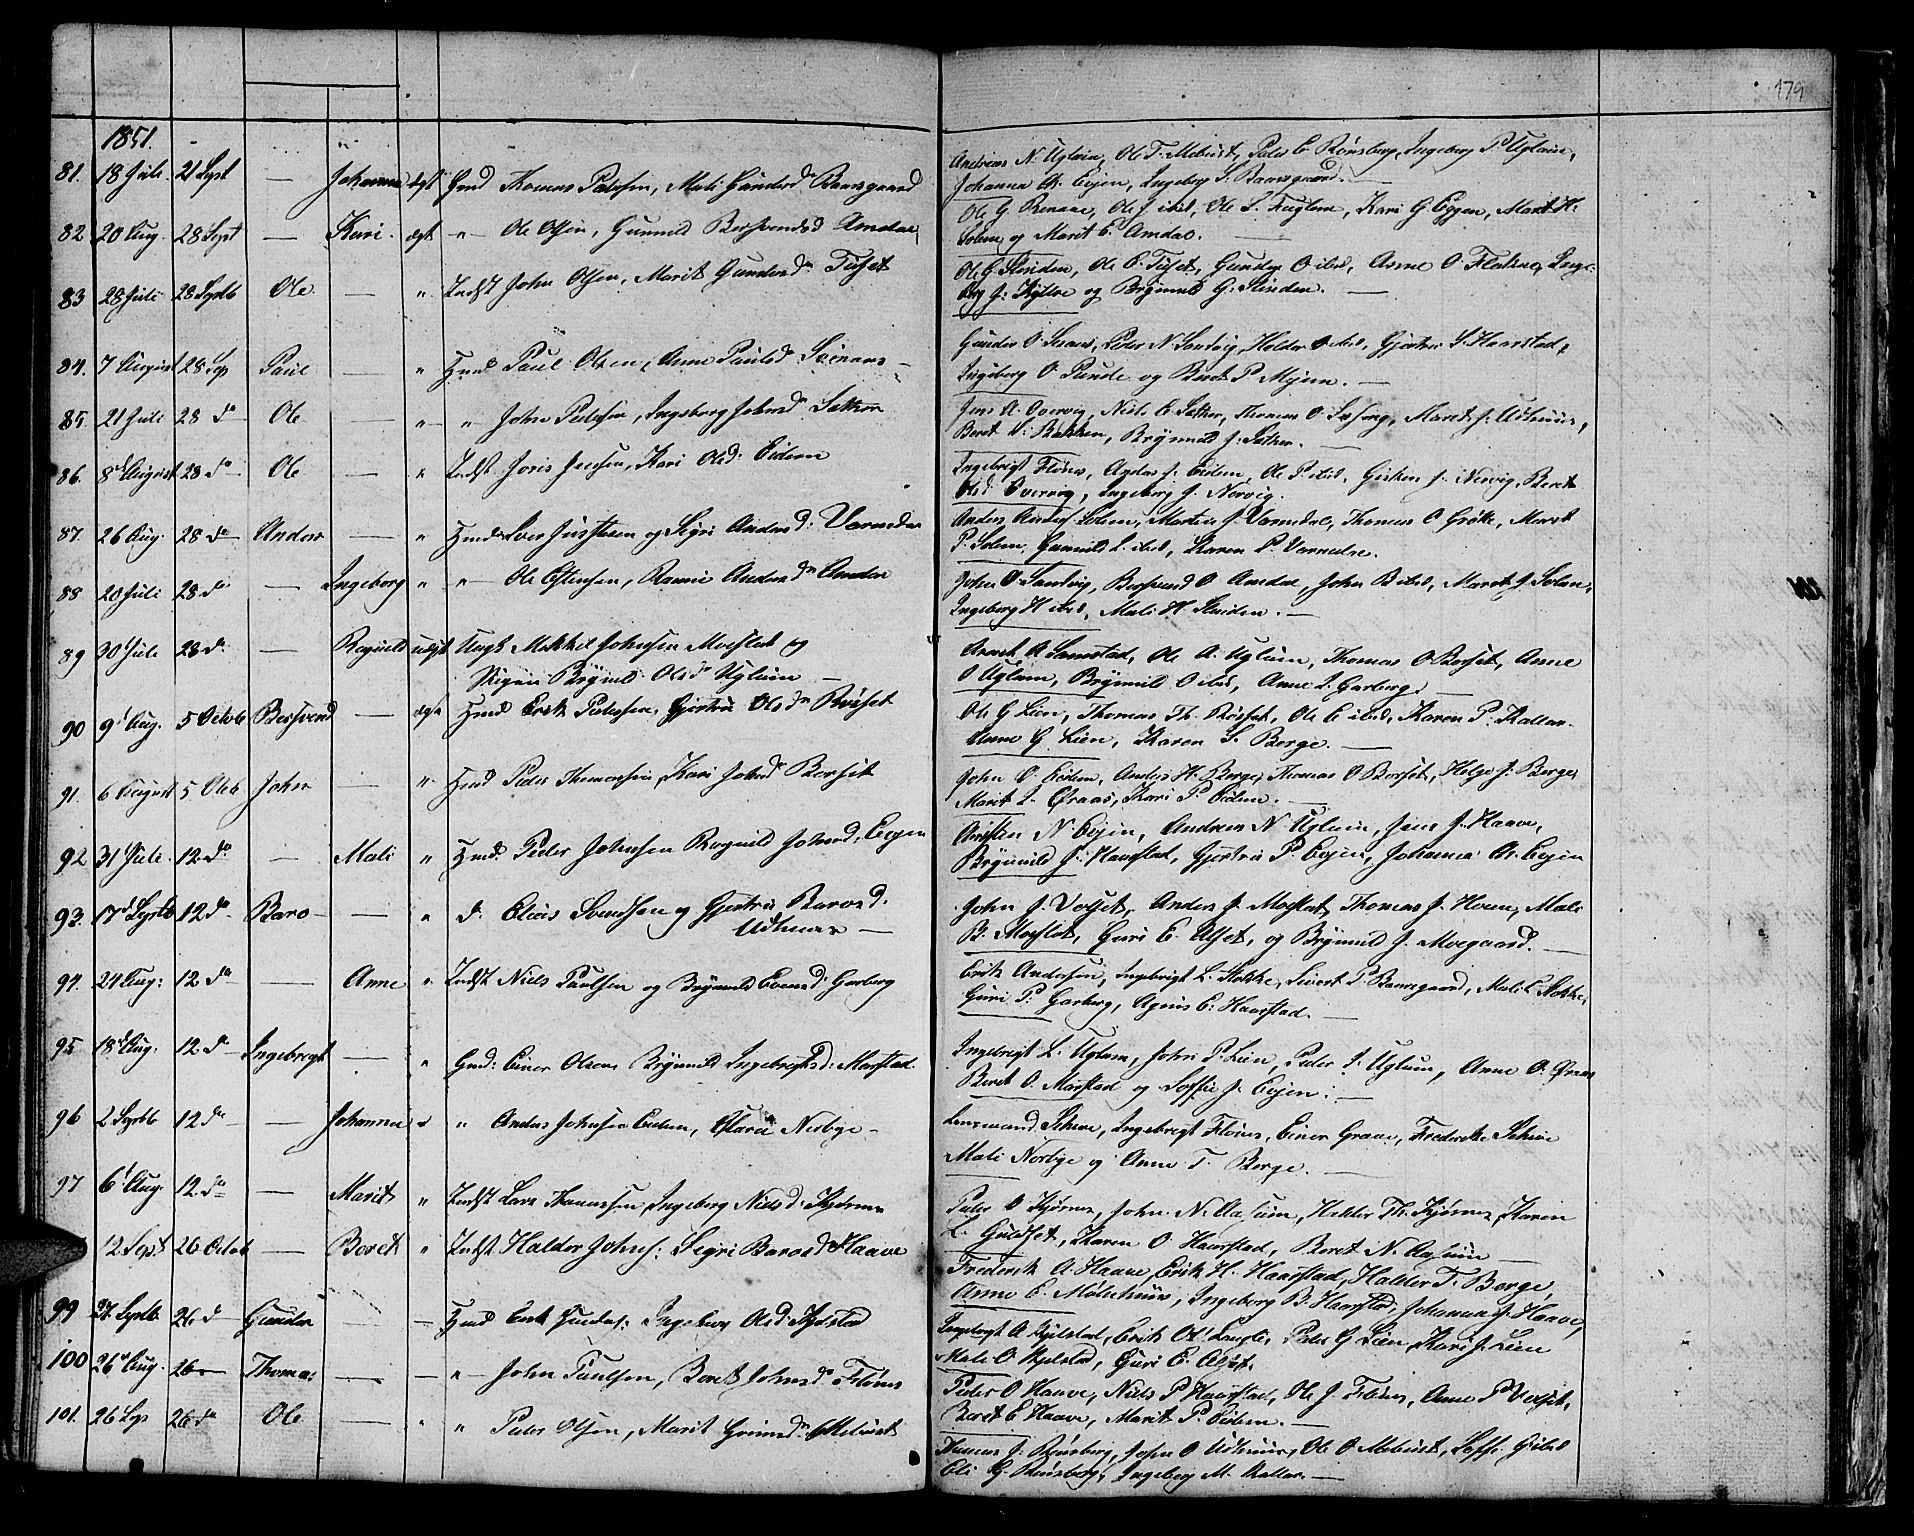 179
1851.
81. 18 Juli 21 Sept — Johanna ægt Gmd Thomas Pedersen, Mali Gundersd Bamsgaard
Andreas N. Uglum, Ole T. Mebust, Peder C. Rønsberg, Ingeborg P. Uglum,
Johanna A. Evjen, Ingeborg S. Bamsgaard. —
82. 20 Aug. 28 Sept — Kari. ægt " Ole Olsen, Gunnild Bersvendsd Amdal
Ole G. Renaae, Ole J. ibid, Ole L. Fuglem, Kari G. Eggen, Marit H.
Solem og Marit E. Amdal.
83 28 Juli 28 Septb Ole — " Indst John Olsen, Marit Gundersd Tuset
Ole G. Slinden, Ole E. Tuset, Gunder O. ibid, Anne O. Flakne, Inge-
borg J. Kyllve og Brynnild G. Slinden. —
84. 7 August 28 Sep Paul — " Hmd Paul Olsen, Anne Paulsd
Gunder O. Peder N. Sandvig, Halder O. ibid, Gjertru S. Haarstad,
Ingeborg O. Punde og Beret P. Mjøen. —
85. 21 Juli 28 do Ole — " " John Pedersen, Ingeborg Johnsd Sæther
Jens A. Overvig, Niels E. Sæther, Thomas O. Marit J. Udhuus,
Beret N. Bakken, Brynnild J. Sæther. —
86. 8de August 28 do Ole — " Indst. Joris Jensen, Kari Olsd. Eidem
Ingebrigt Flønes, Anders J. Eidem, Ole P. ibid, Gisken J. Nervig, Beret
Olsd Overvig, Ingeborg J. Nervig.
87. 26 Aug. 28 do Anders — " Hmd Iver Justesen og Sigri Andersd: Varmdal
Anders Anders. Solem, Martin J. Varmdal, Thomas O. Grøtte, Marit
P. Solem, Gunnild L. ibid, Karen P. Varmdal.
88 20 Juli 28 do — Ingeborg " " Ole Estensen, Randi Andersdr Amdal
John O. Sandvig, Bersvend O. Amdal, John B. ibid, Marit J. Solem,
Ingeborg H. ibid, Mali H. Slinden. —
89 30 Juli 28 do — Ragnild uægt Ungk Mikkel Johnsen Moeslet og
Pigen Brynnild Olsdr Uglum —
A. Samstad, Ole A. Uglum, Thomas O. Borset, Anne
O. Uglum, Brynnild O. ibid, Anne I. Garberg —
90 9d Aug. 5 Octob Bersvend — ægt Hmd Erik Pedersen, Gjertru Olsdr Røset
Ole G. Lien, Thomas Th. Røset, Ole E. ibid, Karen P. Kallar.
Anne G. Lien, Karen S. Berge. —
91. 6 August 5 Octb John — " Hmd Peder Thomassen, Kari Johnsd Borset
John O. Eidem, Anders H. Berge, Thomas O. Borset, Helge J. Berge,
Marit L. Øfraas, Kari P. Eidem. —
92 31 Juli. 12 do — Mali " Hmd. Peder Johnsen Ragnild Johnsd: Evjen
N. Evjen, Andreas N. Uglum, Jens J. Haave,
Brynnild J. Haarstad, Gjertru P. Evjen, Johanna A. Evjen
93. 17d Septb 12 do Baro — " d. Elias Svendsen og Gjertru Barosd.
Udhuus —
John J. Volset, Anders J. Moeslet, Thomas J. Hoem, Mali
B. Moeslet, Guri E. Alset, og Brynnild J. Moegaard. —
94. 24 Aug: 12 do — Anne " Indst Niels Paulsen og Brynnild Evensd: Garberg
Erik Andersen, Ingebrigt L. Stokke, Sivert P. Bamsgaard, Mali E. Stokke,
Guri P. Garberg, Agnis E. Haarstad. —
95 18d Aug. 12 do Ingebrigt — " Gmd: Einer Olsen, Brynnild Ingebrigtsd: Marstad.
Ingebrigt L. Uglum, John P. Lien, Peder I. Uglum, Anne O. Øfraas
Beret O. Marstad og Soffie J. Evjen: —
96 2 Septb 12 do — Johanna " " Anders Johnsen Eidem, Clara Norbye —
Lensmand Scheve, Ingebrigt Flønes, Einer Graae, Frederikke Scheve
Mali Norbye og Anne T. Berge. —
97 6d Aug. 12 do — Marit " Indst Lars Thomassen, Ingeborg Nielsd: Kjørnes
Peder O. Kjørnes, John N. Aasum, Halder Th. Kjørnes, Karen
L. Guldset, Karen O. Haarstad, Beret N. Aasum —
12 Sept. 26 Octob — Beret " Indst Haldor Johns: Sigri Barosd Haave
Frederik A. Haave, Erik H. Haarstad, Halder T. Berge,
Anne E. Møllehuus, Ingeborg B. Haarstad, Johanna J. Haave,
99 27 Septb. 26 d Gunder — — Hmd Erik Gunders: Ingeborg Olsd Kjelstad
Ingebrigt A. Kjelstad, Erik Ol. Langli, Peder G. Lien, Kari J. Lien
Mali O. Kjelstad, Guri E. Alset.
100 26d Aug. 26 — Thomas — — " — John Paulsen, Beret Johnsdr Flønes
Peder O. Haave, Niels P. Haarstad, Ole J. Flønes, Anne P. Volset,
Beret E. Haave, Marit P. Eidem. —
101. 26 Sep 26 do Ole — " " Peder Olsen, Marit Grimsdr. Mebust
Thomas J. Rønsberg, John O. Udhuus, Ole O. Mebust, Soffi G. ibid
Eli G. Rønsberg, Ingeborg M. Kallar. —